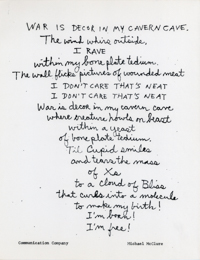 WAR IS DECOR IN MY CAVERN CAVE.
The wind whirs outside,
I RAVE
within my bone plate tedium.
The wall flicks pictures of wounded meat
I DON'T CARE THAT'S NEAT
I DON'T CARE THAT'S NEAT
War is decor in my cavern cave
where creature howls or beast
within a yeast
of bone plate tedium.
'Til Cupid smiles
and tears the mass
of Xs
to a cloud of Bliss
that curls into a molecule
to make my birth!
I'm born!
I'm free!
Communication Company Michael McClure